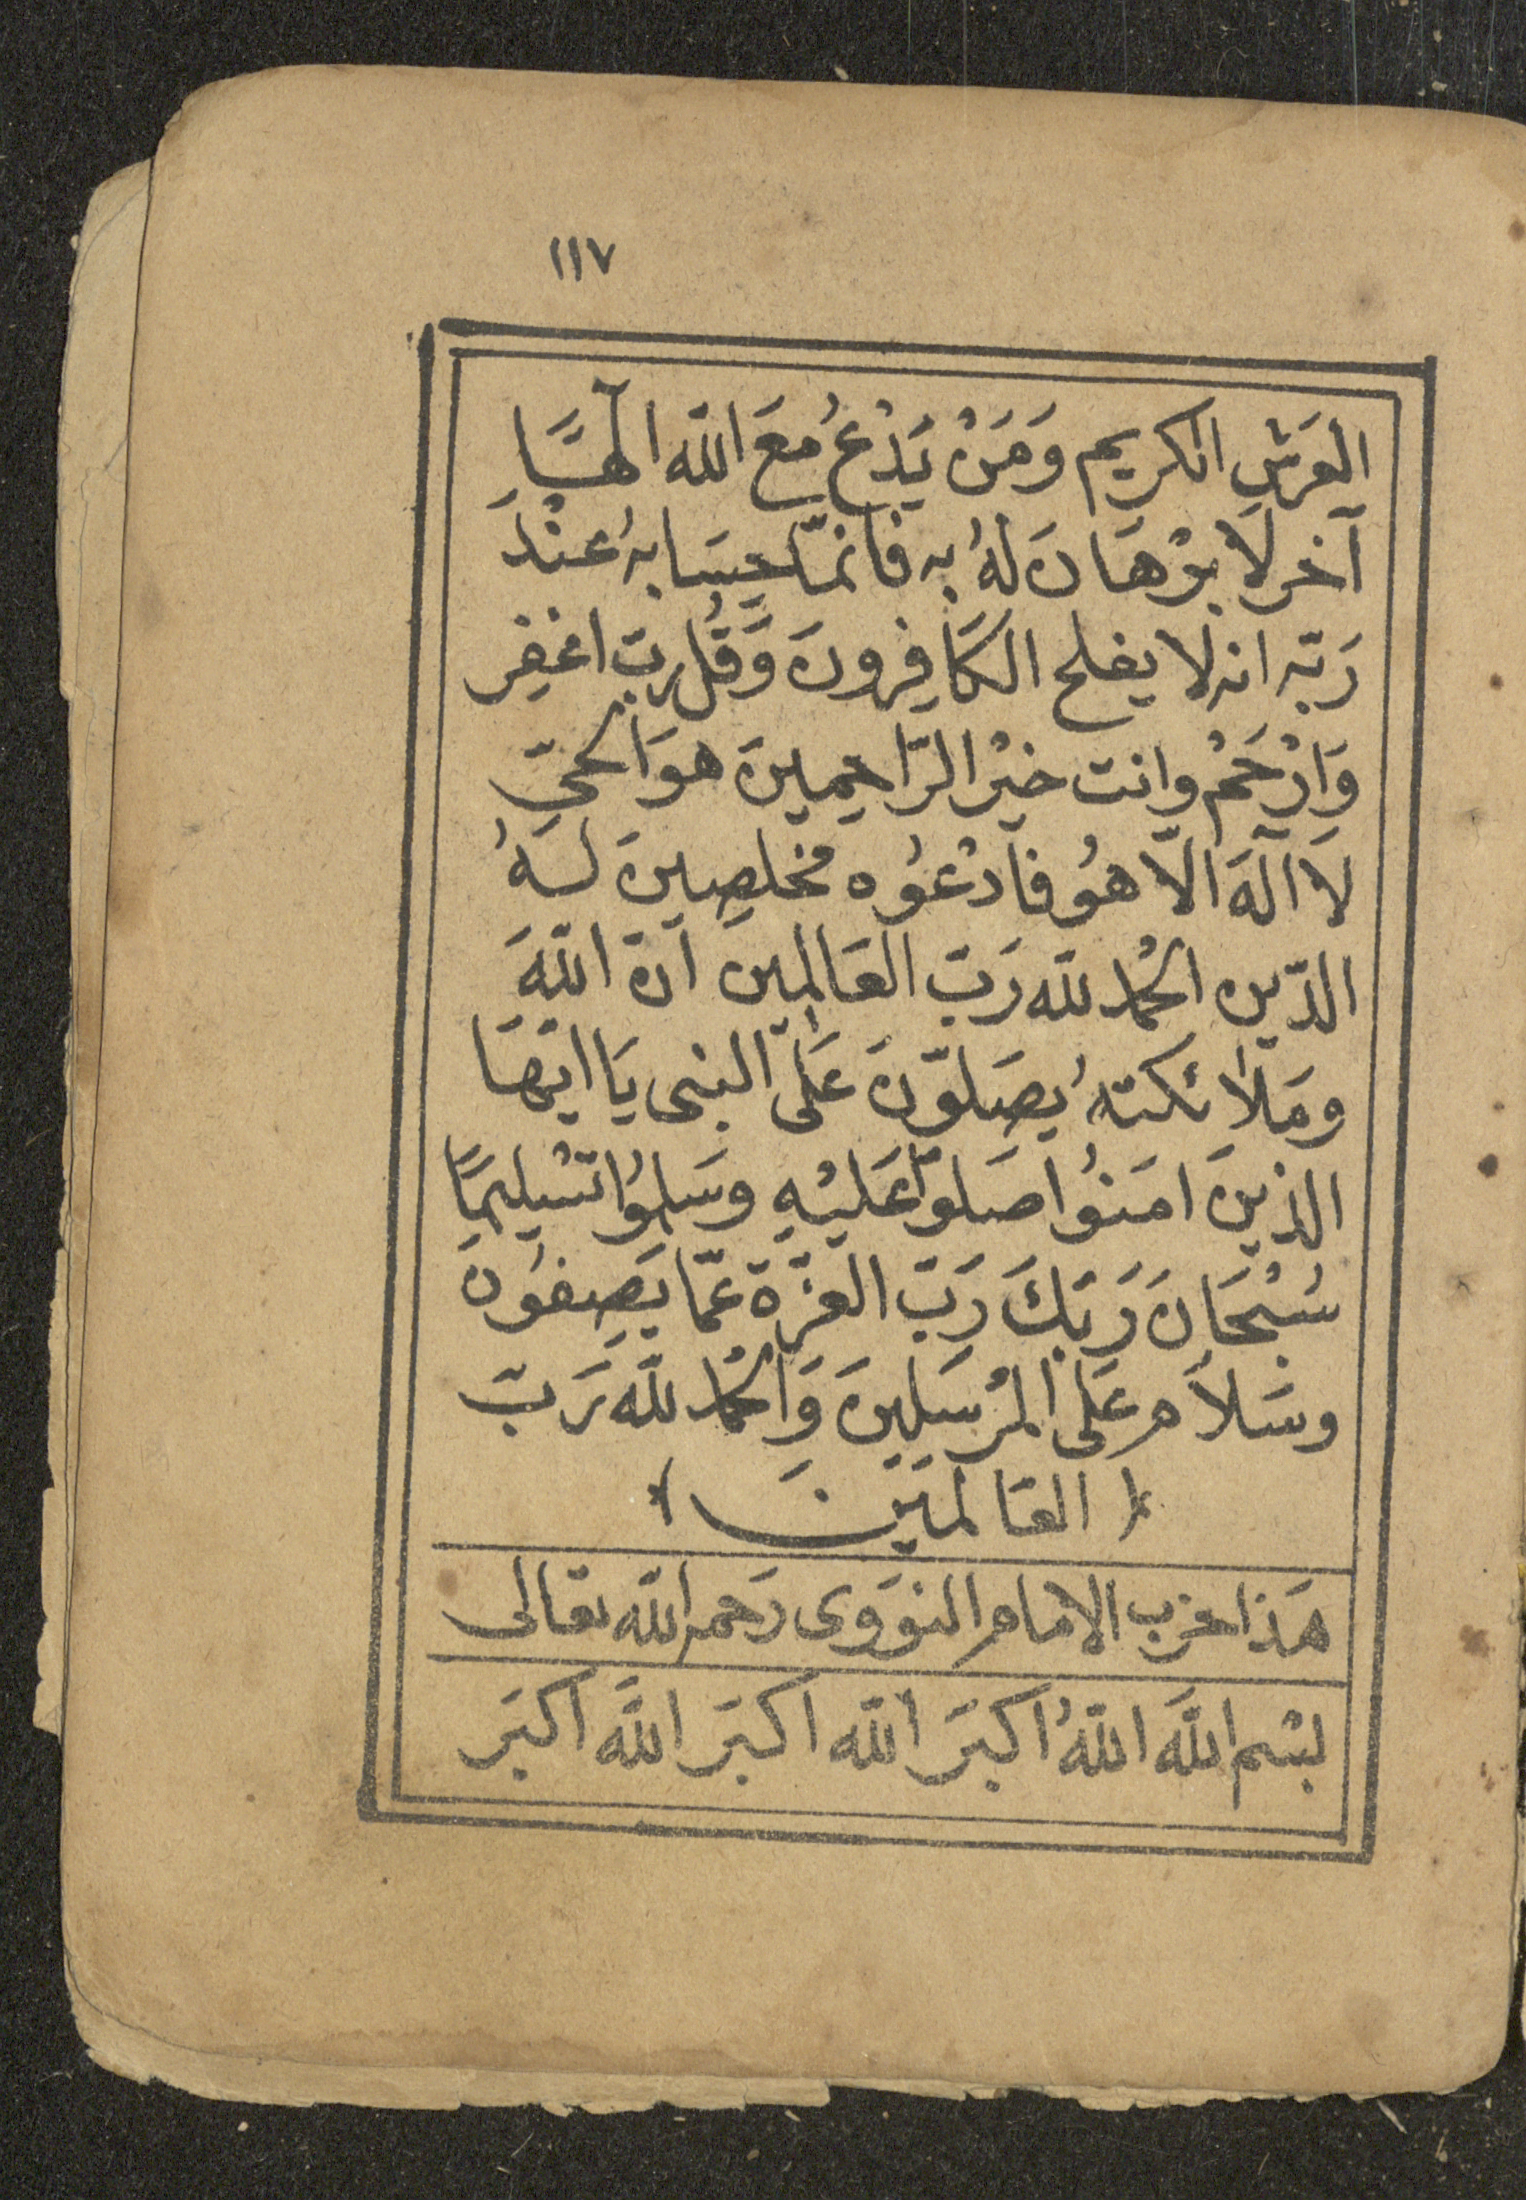 ١١٧
العَرشِ الكريم وَمَنْ يَدْعُ مَعَ اللّه الٰهًا
آخر لَا برْهَانَ لهُ به فانمّا حِسَابهُ عنْدَ
رَبّه انه لا يفلح الكَافِرونَ وَقُل ربّ اغفِر
وَارْحَمْ وانت خيْر الرّاحِمِينَ هوَ الحىّ
لَا آلهَ الّا هوُ فادْعُوه مخلصِينَ لهُ
الدّين الحْمد للّه رَبّ العَالمِينَ انّ اللّهَ
ومَلَائكتهُ يصَلوّنَ عَلَى النبى يَا ايّهَا
الذينَ امَنوُا صَلوّا عَليْهِ وسَلموُا تسْليمًا
سُبْحَانَ رَبّكَ رَبّ العزّة عمّا يَصِفوُنَ
وسَلاَم عَلى المرْسَلينَ وَالحْمد للّه رَبّ
﴿ العَالمَينَ ﴾
هَذا حزب الامام النوَوى رَحمه اللّه تعالى
بسْم اللّهَ اللّهُ اكبَر اللّه اكبَر اللّهَ اكبَر